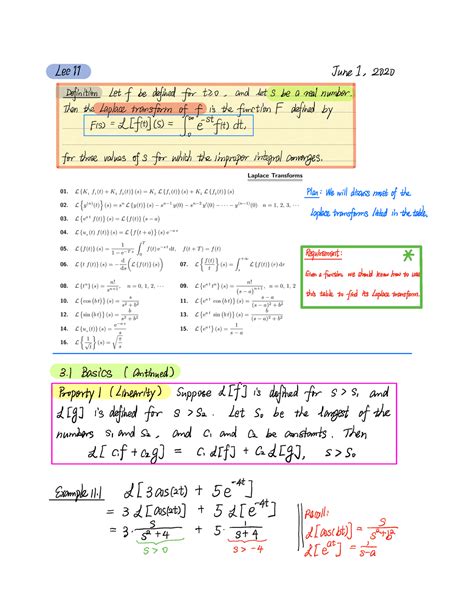 Lec 11
June 1, 2020
Definition Let f be defined for t≥0, and let s be a real number.
Then the Laplace transform of f is the function F defined by
F(s) = L[f(t)](s) = ∫₀^∞ e^{-st} f(t) dt,
for those values of s for which the improper integral converges.
Laplace Transforms
01. L{K₁ f₁(t) + K₂ f₂(t)}(s) = K₁ L{f₁(t)}(s) + K₂ L{f₂(t)}(s)
02. L{y^{(n)}(t)}(s) = s^n L{y(t)}(s) − s^{n−1} y(0) − s^{n−2} y'(0) − ··· − y^{(n−1)}(0) n = 1, 2, 3, ···
03. L{e^{at} f(t)}(s) = L{f(t)}(s − a)
05. L{f(t)}(s) = 1/(1 − e^{−Ts}) ∫₀^T f(t) e^{−st} dt, f(t + T) = f(t)
06. L{t f(t)}(s) = −d/ds (L{f(t)}(s)) 07. L{f(t)/t}(s) = ∫_s^{+∞} L{f(t)}(s) ds
08. L{t^n}(s) = n!/s^{n+1}, n = 0, 1, 2, ··· 09. L{t^n e^{at}}(s) = n!/(s − a)^{n+1}, n = 0, 1, 2, ···
10. L{cos(bt)}(s) = s/(s² + b²) 11. L{e^{at} cos(bt)}(s) = (s − a)/((s − a)² + b²)
12. L{sin(bt)}(s) = b/(s² + b²) 13. L{e^{at} sin(bt)}(s) = b/((s − a)² + b²)
15. L{e^{at}}(s) = 1/(s − a)
Plan: We will discuss most of the
Laplace transforms listed in the table.
Requirement: *
Given a function we should know how to use
this table to find its Laplace transform.
3.1 Basics (Continued)
Property 1 (Linearity) Suppose L[f] is defined for s > s₁ and
L[g] is defined for s > s₂. Let s₀ be the largest of the
numbers s₁ and s₂, and c₁ and c₂ be constants. Then
L[c₁f + c₂g] = c₁L[f] + c₂L[g], s > s₀
Example 11.1 L[3cos(2t) + 5e^{-4t}]
= 3L[cos(2t)] + 5L[e^{-4t}]
= 3· s/(s²+4) + 5· 1/(s+4)
s>0 s>-4
Recall:
L[cos(bt)] = s/(s²+b²)
L[e^{at}] = 1/(s-a)